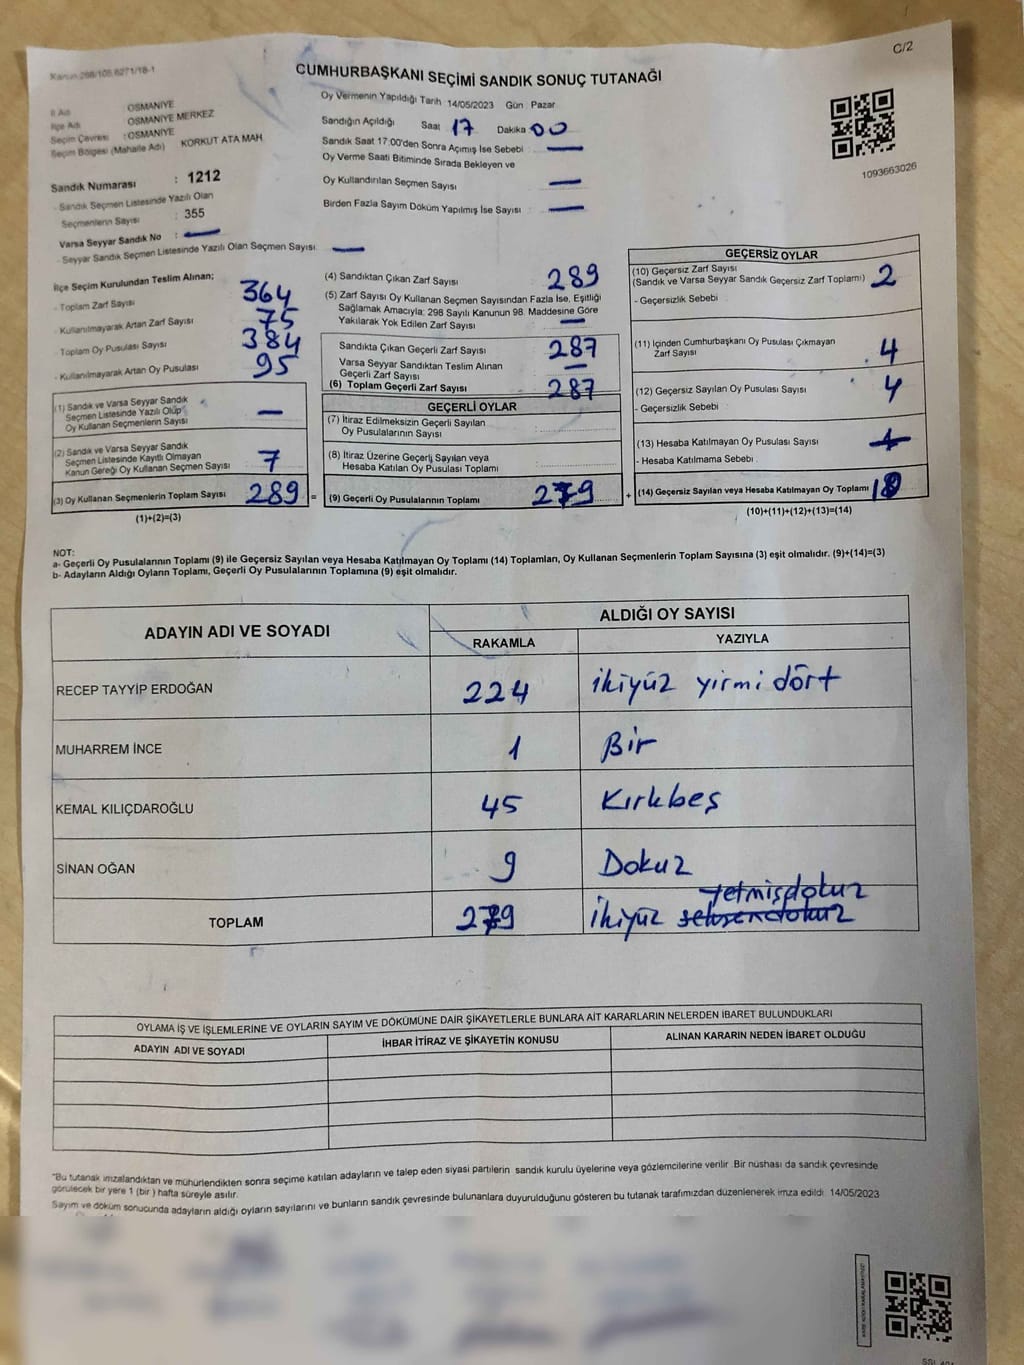 Kanun 298/105.6271/18-1
C/2
CUMHURBAŞKANI SEÇİMİ SANDIK SONUÇ TUTANAĞI
İl Adı OSMANİYE
İlçe Adı OSMANİYE MERKEZ
Seçim Çevresi : OSMANİYE
Seçim Bölgesi (Mahalle Adı) KORKUT ATA MAH
Sandık Numarası : 1212
- Sandık Seçmen Listesinde Yazılı Olan
Seçmenlerin Sayısı : 355
Varsa Seyyar Sandık No : —
- Seyyar Sandık Seçmen Listesinde Yazılı Olan Seçmen Sayısı: —
Oy Vermenin Yapıldığı Tarih 14/05/2023 Gün : Pazar
Sandığın Açıldığı Saat 17 Dakika 00
Sandık Saat 17:00'den Sonra Açımış İse Sebebi : —
Oy Verme Saati Bitiminde Sırada Bekleyen ve
Oy Kullandırılan Seçmen Sayısı : —
Birden Fazla Sayım Döküm Yapılmış İse Sayısı : —
1093663026
İlçe Seçim Kurulundan Teslim Alınan;
- Toplam Zarf Sayısı 364
- Kullanılmayarak Artan Zarf Sayısı 75
- Toplam Oy Pusulası Sayısı 384
- Kullanılmayarak Artan Oy Pusulası 95
(1) Sandık ve Varsa Seyyar Sandık
Seçmen Listesinde Yazılı Olup
Oy Kullanan Seçmenlerin Sayısı —
(2) Sandık ve Varsa Seyyar Sandık
Seçmen Listesinde Kayıtlı Olmayan
Kanun Gereği Oy Kullanan Seçmen Sayısı 7
(3) Oy Kullanan Seçmenlerin Toplam Sayısı 289 =
(1)+(2)=(3)
(4) Sandıktan Çıkan Zarf Sayısı 289
(5) Zarf Sayısı Oy Kullanan Seçmen Sayısından Fazla İse, Eşitliği
Sağlamak Amacıyla; 298 Sayılı Kanunun 98. Maddesine Göre
Yakılarak Yok Edilen Zarf Sayısı : —
Sandıkta Çıkan Geçerli Zarf Sayısı 287
Varsa Seyyar Sandıktan Teslim Alınan
Geçerli Zarf Sayısı —
(6) Toplam Geçerli Zarf Sayısı 287
GEÇERLİ OYLAR
(7) İtiraz Edilmeksizin Geçerli Sayılan
Oy Pusulalarının Sayısı
(8) İtiraz Üzerine Geçerli Sayılan veya
Hesaba Katılan Oy Pusulası Toplamı
(9) Geçerli Oy Pusulalarının Toplamı 279 +
GEÇERSİZ OYLAR
(10) Geçersiz Zarf Sayısı
(Sandık ve Varsa Seyyar Sandık Geçersiz Zarf Toplamı) : 2
- Geçersizlik Sebebi :
(11) İçinden Cumhurbaşkanı Oy Pusulası Çıkmayan
Zarf Sayısı : 4
(12) Geçersiz Sayılan Oy Pusulası Sayısı : 4
- Geçersizlik Sebebi :
(13) Hesaba Katılmayan Oy Pusulası Sayısı
- Hesaba Katılmama Sebebi :
(14) Geçersiz Sayılan veya Hesaba Katılmayan Oy Toplamı
(10)+(11)+(12)+(13)=(14)
NOT:
a- Geçerli Oy Pusulalarının Toplamı (9) ile Geçersiz Sayılan veya Hesaba Katılmayan Oy Toplamı (14) Toplamları, Oy Kullanan Seçmenlerin Toplam Sayısına (3) eşit olmalıdır. (9)+(14)=(3)
b- Adayların Aldığı Oyların Toplamı, Geçerli Oy Pusulalarının Toplamına (9) eşit olmalıdır.
ADAYIN ADI VE SOYADI ALDIĞI OY SAYISI
RAKAMLA YAZIYLA
RECEP TAYYİP ERDOĞAN 224 ikiyüz yirmi dört
MUHARREM İNCE 1 Bir
KEMAL KILIÇDAROĞLU 45 Kırkbeş
SİNAN OĞAN 9 Dokuz
yetmişdokuz
TOPLAM 279 ikiyüz seksendokuz
OYLAMA İŞ VE İŞLEMLERİNE VE OYLARIN SAYIM VE DÖKÜMÜNE DAİR ŞİKAYETLERLE BUNLARA AİT KARARLARIN NELERDEN İBARET BULUNDUKLARI
ADAYIN ADI VE SOYADI İHBAR İTİRAZ VE ŞİKAYETİN KONUSU ALINAN KARARIN NEDEN İBARET OLDUĞU
"Bu tutanak imzalandıktan ve mühürlendikten sonra seçime katılan adayların ve talep eden siyasi partilerin sandık kurulu üyelerine veya gözlemcilerine verilir. Bir nüshası da sandık çevresinde
görülecek bir yere 1 (bir) hafta süreyle asılır.
Sayım ve döküm sonucunda adayların aldığı oyların sayılarını ve bunların sandık çevresinde bulunanlara duyurulduğunu gösteren bu tutanak tarafımızdan düzenlenerek imza edildi. 14/05/2023